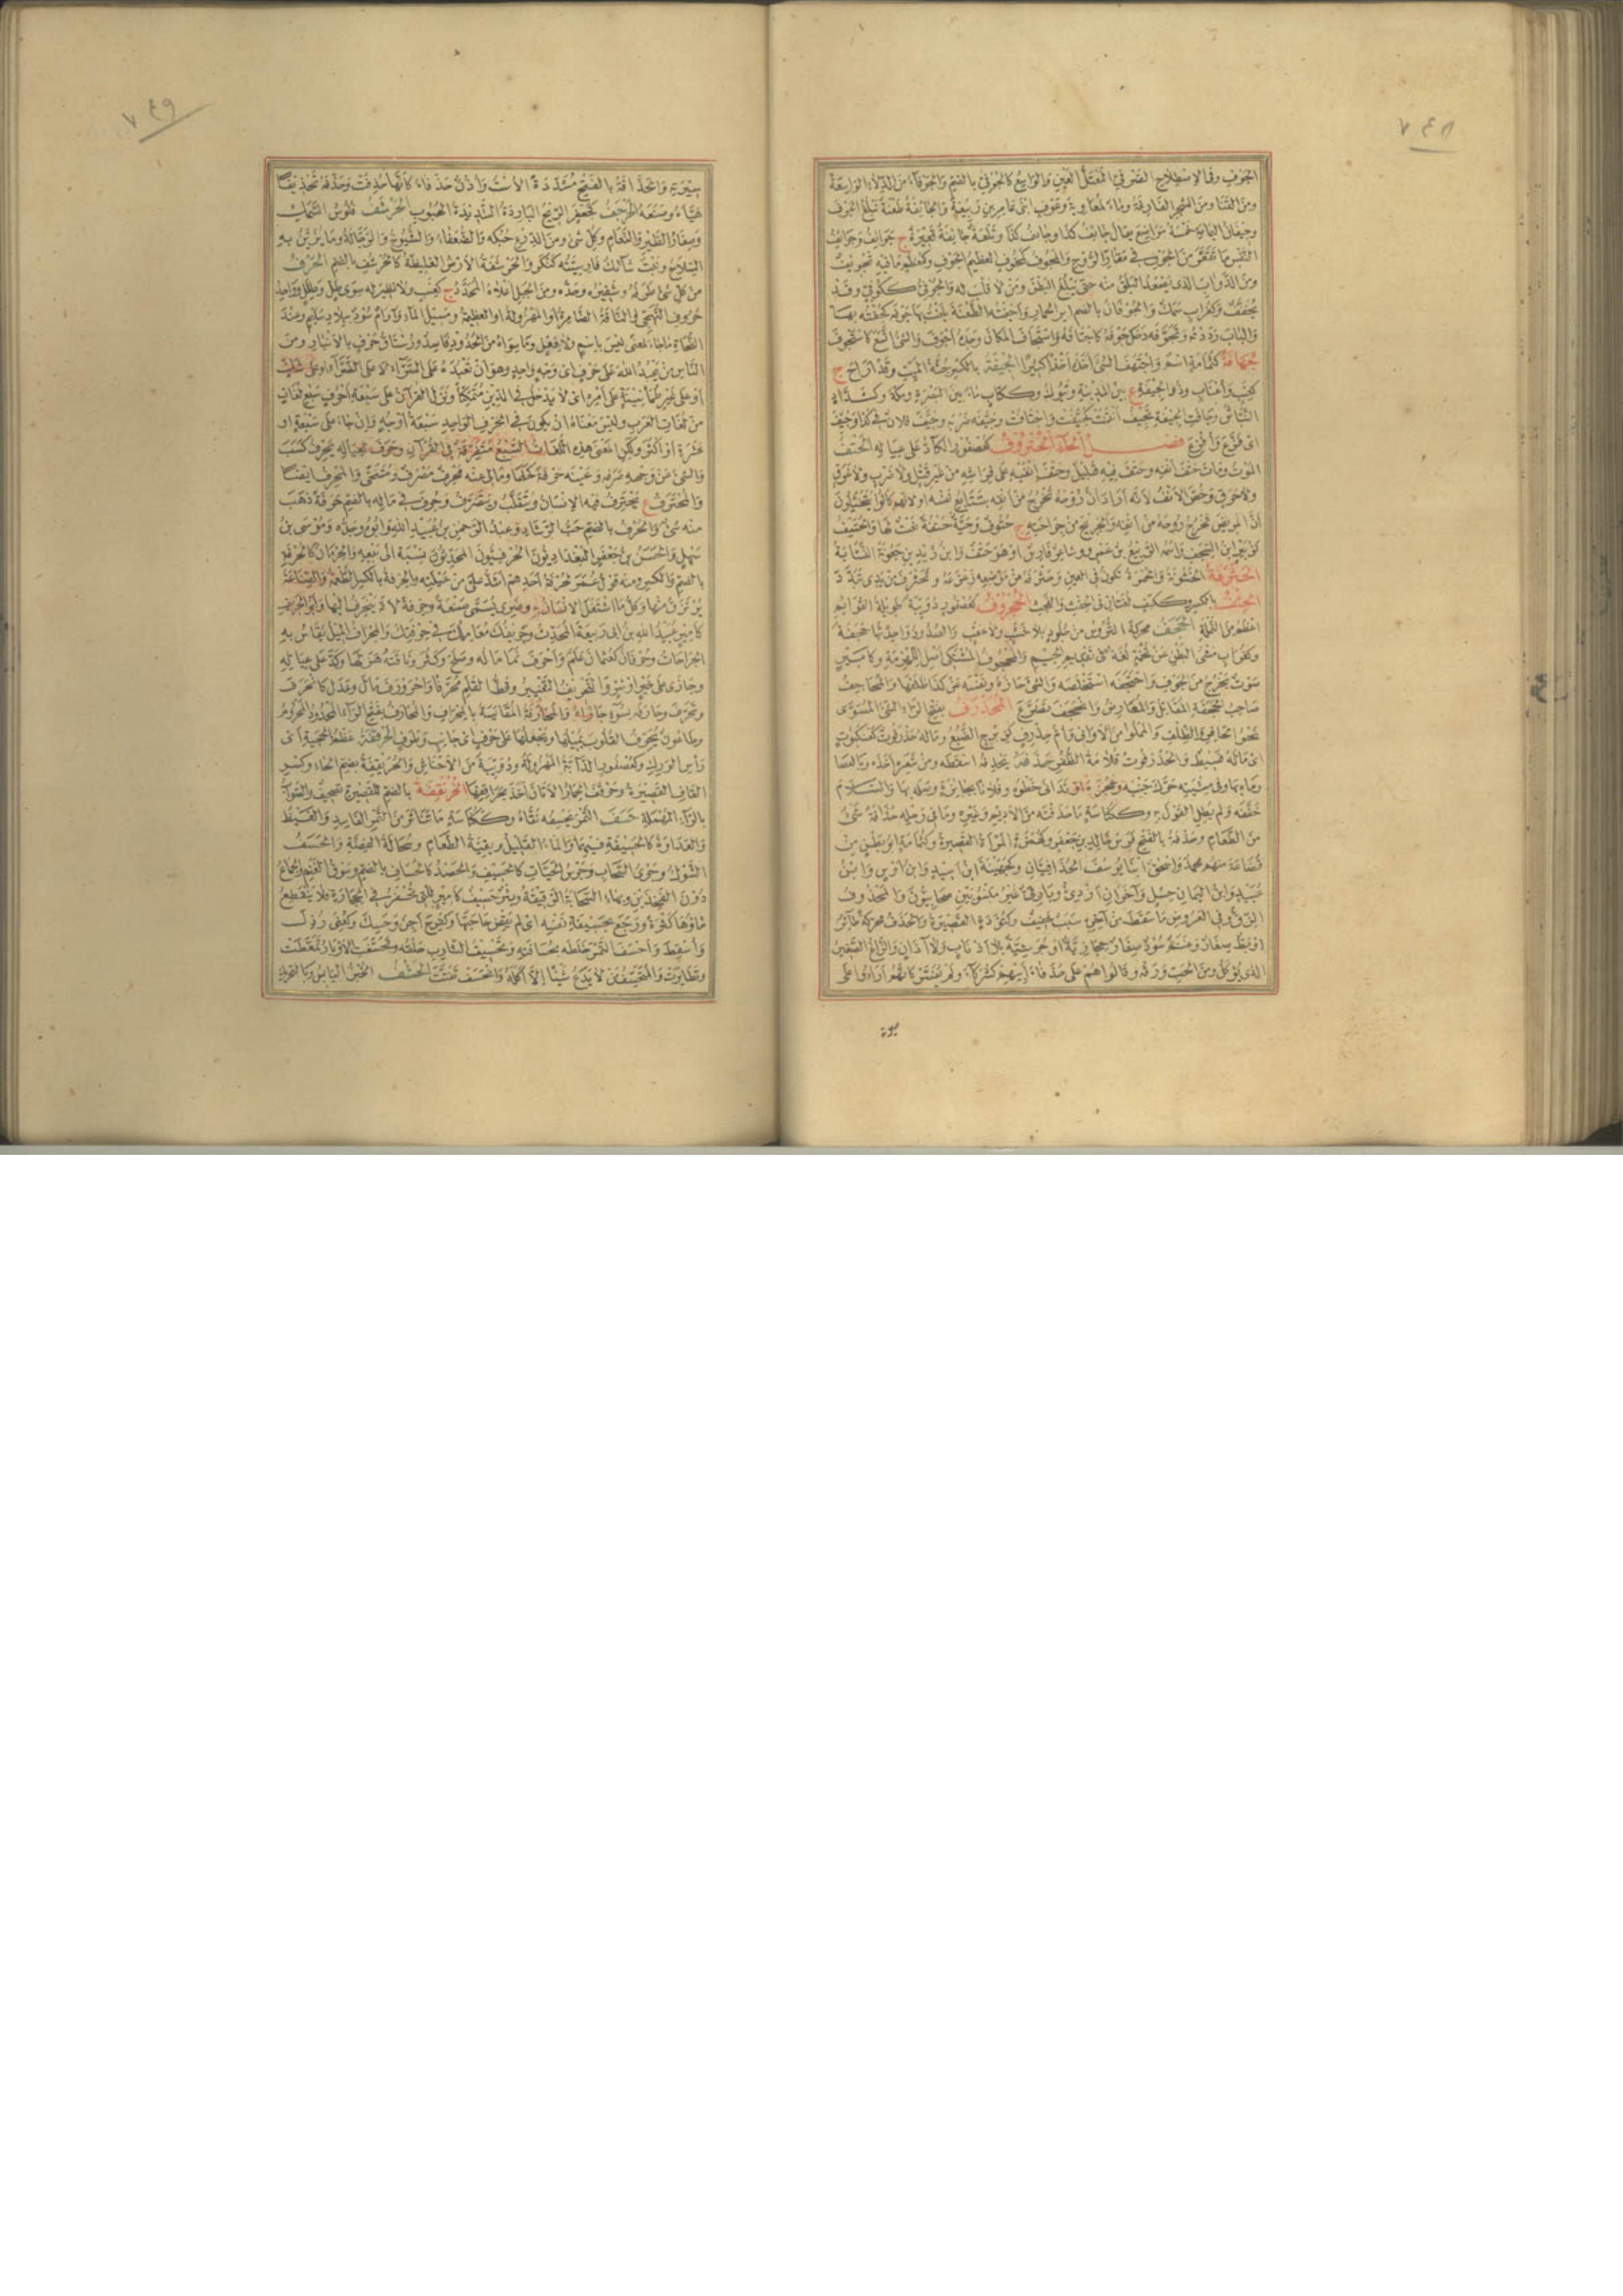 ٧٤٨
الجوف وفى الاصطلاح الصرفى المعتل العين والواسع كالجوفى بالضم والجوفاء من الدلاء الواسعة
ومن القنا ومن الشجر الفارغة وماء لمعاوية وعوف ابنى عامر بن ربيعة والجائفة طعنة تبلغ الجوف
وجيفان اليمامة خمسة مواضع يقال جائف كذا وجائف كذا وتلعة جائفة قعيرة ج جوائف وجوائف
النفس ما تقعر من الجوف فى مقار الروح والمجوف كمخوف العظيم الجوف وكمعظم ما فيه تجويف
ومن الدواب الذى يصعد البلق منه حتى يبلغ البطن ومن لا قلب له والجوفى ككوفى وقد
يخفف وكغراب سمك والجوفان بالضم اير الحمار واجفته الطعنة بلغت بها جوفه كجفته بها
والباب رددته وتجوفه دخل جوفه كاجتافه واستجاف المكان وجده اجوف والشئ اتسع كاستجوف
جهافة كثمامة اسم واجتهف الشئ اخذه اخذا كثيرا الجيفة بالكسر جثة الميت وقد اراح ج
كعنب واعناب وذو الجيفة ع بين المدينة وتبوك وككتاب ماء بين البصرة ومكة وكشداد
النباش وجافت الجيفة تجيف انتنت كجيفت واجتافت وجيفه ضربه وجيف فلان فى كذا وجيف
اى فزع وافزع فصل الحاء الحتروف كعصفور الكاد على عياله الحتف
الموت ومات حتف انفه وحتف فيه قليل وحتف انفيه على فراشه من غير قتل ولا ضرب ولا غرق
ولا حرق وخص الانف لانه اراد ان روحه تخرج من انفه بتتابع نفسه او لانهم كانوا يتخيلون
ان المريض تخرج روحه من انفه والجريح من جراحته ج حتوف وحية حتفة نعت لها والحتيف
كزبير ابن السجف واسمه الربيع بن عمرو وشاعر فارس او هو حتف وابن زيد بن جعونة النسابة
الحثرفة الخشونة والحمرة تكون فى العين وحثرفه من موضعه زعزعه وتحثرف من يدى تبدد
الحثف بالكسر وككتف لغتان فى الحفث والفحث الحجروف كعصفور دويبة طويلة القوائم
اعظم من النملة الحجف محركة التروس من جلود بلا خشب ولا عقب والصدور واحدتها حجفة
وكغراب مشى البطن عن تخمة لغة فى تقديم الجيم والمحجوف المشتكى اصل اللهزمة وكامير
صوت يخرج من الجوف واحتجفه استخلصه والشئ حازه ونفسه عن كذا ظلفها والمحاجف
صاحب الحجفة المقاتل والمعارض وانحجف تضرع المحذرف بفتح الراء الشئ المستوى
نحو الحافر والظلف والمملوا من الاوانى وام حذرف كزبرج الضبع وماله حذرفوت كعنكبوت
اى ماله فسيط والحذرفوت قلامة الظفر حذفه يحذفه اسقطه ومن شعره اخذه وبالعصا
رماه بها وفى مشيته حرك جنبه وعجزه او تدانى خطوه وفلانا بجائزة وصله بها والسلام
خففه ولم يطل القول به وككناسة ما حذفته من الاديم وغيره وما فى رحله حذافة شئ
من الطعام وحذفة بالفتح فرس خالد بن جعفر وكهمزة المراة القصيرة وكثمامة ابو بطن من
قضاعة منهم محمد واسحق ابنا يوسف الحذافيان وكجهينة ابن اسيد وابن اوس وابن
عبيد وابن اليمان حسل وآخران ازدى وبارقى غير منسوبين صحابيون والمحذوف
الزق وفى العروض ما سقط من آخره سبب خفيف وكتؤدة القصيرة والحذف محركة طائر
او بط صغار وغنم سود صغار حجازية او جرشية بلا اذناب ولا آذان والزاغ الصغير
الذى يؤكل ومن الحب ورقه وقالوا هم على حذفاء ابيهم كشركاء ولم يفسروا كانهم ارادوا على
سيرة
٧٤٩
سيرته والحذافة بالفتح مشددة الاست واذن حذفاء كانها حذفت وحذفه تحذيفا
هياه وصنعه الحرجف كجعفر الريح الباردة الشديدة الهبوب الحرشف فلوس السمك
وصغار الطير والنعام وكل شئ ومن الدرع حبكه والضعفاء والشيوخ والرجالة وما يزين به
السلاح ونبت شائك فارسيته كنكر والحرشفة الارض الغليظة كالحرشف بالضم الحرف
من كل شئ طرفه وشفيره وحده ومن الجبل اعلاه المحدد ج كعنب ولا نظير له سوى طل وطلل وواحد
حروف التهجى والناقة الضامرة او المهزولة او العظيمة ومسيل الماء وآرام سود ببلاد سليم وعند
النحاة ما جاء لمعنى ليس باسم ولا فعل وما سواه من الحدود فاسد ورستاق حرف بالانبار ومن
الناس من يعبد الله على حرف اى وجه واحد وهو ان تعبده على السراء لا على الضراء او على شك
او على غير طمانينة على امره اى لا يدخل فى الدين متمكنا ونزل القرآن على سبعة احرف سبع لغات
من لغات العرب وليس معناه ان يكون فى الحرف الواحد سبعة اوجه وان جاء على سبعة او
عشرة او اكثر ولكن المعنى هذه اللغات السبع متفرقة فى القرآن وحرف لعياله يحرف كسب
والشئ عن وجهه صرفه وعينه حرفة كحلها ومالى عنه محرف مصرف ومتنحى والمحرف ايضا
والمحترف ع يحترف فيه الانسان ويتقلب ويتصرف وحرف فى ماله بالضم حرفة ذهب
منه شئ والحرف بالضم حب الرشاد وعبد الرحمن بن عبيد الله وابوه وجده وموسى بن
سهل والحسن بن جعفر البغدادى الحرفيون المحدثون نسبة الى بيعه والحرمان كالحرفة
بالضم والكسر ومنه قول عمر لحرفة احدهم اشد على من عيلته والحرفة بالكسر الطعمة والصناعة
يرتزق منها وكل ما اشتغل الانسان به وضرى يسمى صنعة وحرفة لانه ينحرف اليها وابو الحريف
كامير عبيد الله بن ابى ربيعة المحدث وحريفك معاملك فى حرفتك والمحراف الميل يقاس به
الجراحات وحرفان كعثمان علم واحرف نما ماله وصلح وكثر وناقته هزلها وكد على عياله
وجازى على خير او شر والتحريف التغيير وقط القلم محرفا واحرورف مال وعدل كانحرف
وتحرف وحارفه بسوء جازاه والمحارفة المقايسة بالمحراف والمحارف بفتح الراء المحدود المحروم
وطاعون يحرف القلوب يميلها ويجعلها على حرف اى جانب وطرف الحرقفة عظم الحجبة اى
راس الورك وكعصفور الدابة المهزولة ودويبة من الاحناش والحريقفة بضم الحاء وكسر
القاف القصيرة وحرقف الحمار الاتان اخذ بحراقفها الحزنقفة بالضم القصيرة تصحيف والصواب
بالراء المهملة حسف التمر يحسفه نقاه وككناسة ما تناثر من التمر الفاسد والغيظ
والعداوة كالحسيفة فيهما والماء القليل وبقية الطعام وسحالة الفضة والحسف
الشوك وجرى السحاب وجرس الحيات كالحسيف والحصد كالحساف بالضم وسوق الغنم والجماع
دون الفخذين وبهاء السحابة الرقيقة وبئر حسيف كامير التى تحفر فى الحجارة فلا ينقطع
ماؤها كثرة ورجع بحسيفة نفسه اى لم يقض حاجتها وكفرح اجن وحسك وكعنى رذل
واسقط واحسف التمر خلطه بحسافته وتحسيف الشارب حلقه وتحسفت الاوبار تمعطت
وتطايرت والمتحسف من لا يدع شيئا الا اكله وانحسف تفتت الحشف الخبز اليابس وبالتحريك